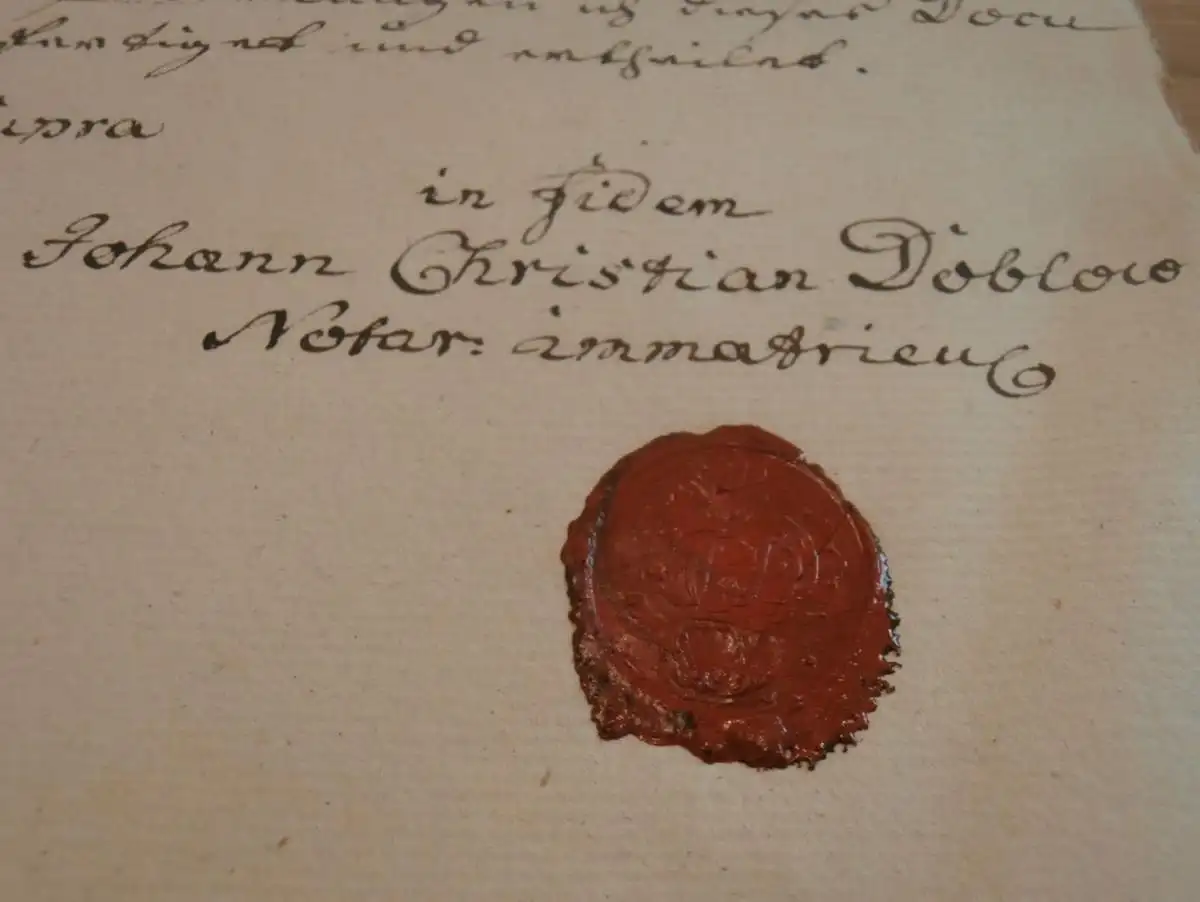 ich dieses Docu
fertiget und ertheilet.
supra
in Fidem
Johann Christian Döblow
Notar: immatricul